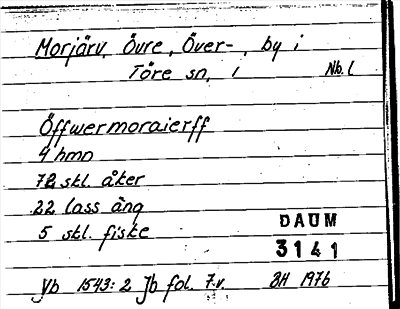 Morjärv, Övre, Över-, by i
Töre sn, 1 Nb.l
Öffwermoraierff
4 hmn
72 skl. åker
22 lass äng
5 skl. fiske
DAUM
3141
Jb 1543:2 Jb fol. 7.v. BH 1976